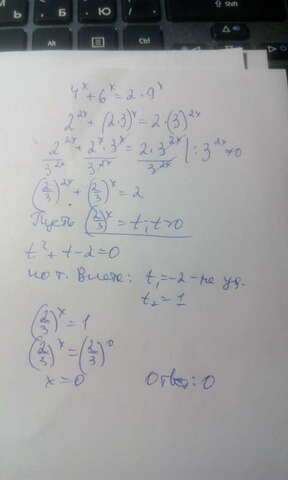 Shift
4^x + 6^x = 2 · 9^x
2^{2x} + (2·3)^x = 2·(3)^{2x}
2^{2x}/3^{2x} + 2^x · 3^x/3^{2x} = 2·3^{2x}/3^{2x} | : 3^{2x} ≠0
(2/3)^{2x} + (2/3)^x = 2
Пусть (2/3)^x = t, t>0
t² + t - 2 = 0
по т. Виета: t₁ = -2 - не уд.
t₂ = 1
(2/3)^x = 1
(2/3)^x = (2/3)^0
x = 0
Ответ: 0